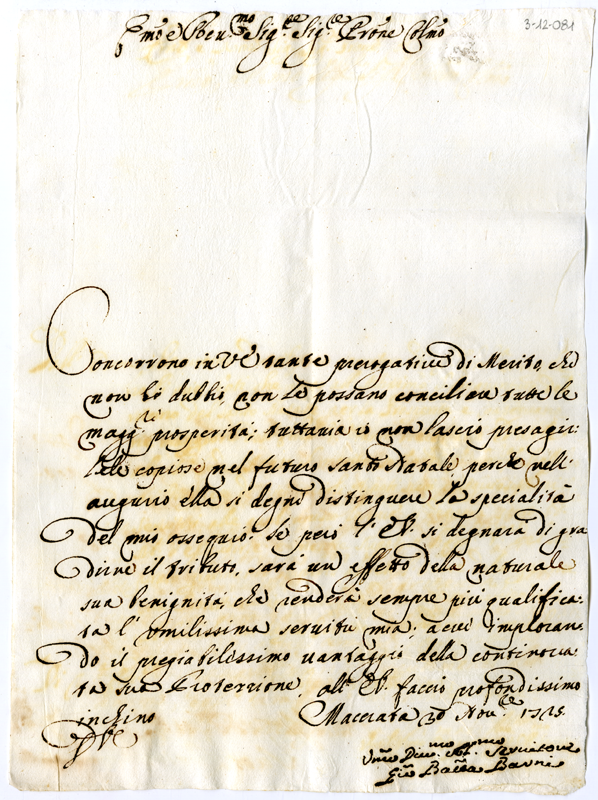 3-12-081
Emo e Reu.mo Sig.re Sig.re Prone Colmo
Concorrono in VE tante prerogative di Merito, che
non hò dubbio, non Le possano conciliare tutte le
magg.ri prosperità; tuttavia io non lascio presagir:
Le copiose nel futuro Santo Natale, perche nell'
augurio ella si degni distinguere la specialità
del mio ossequio: Se però l' EV. si degnarà di gra
dirne il tributo, sarà un effetto della naturale
sua benignità, che renderà sempre più qualifica:
ta l' umilissima servitù mia; a cui imploran
do il pregiabilissimo vantaggio della continoua
ta sua Protezzione, all' EV. faccio profondissimo
inchino Macerata 20 Nov.bre 1725.
DVE
Umo Diu.mo Servitore
Gio Batta Barni